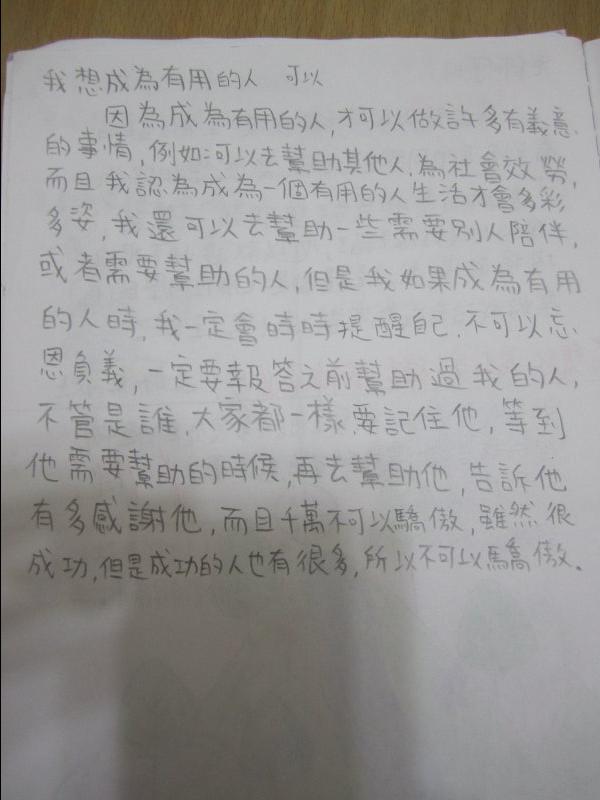 我想成為有用的人 可以
因為成為有用的人,才可以做許多有義意
的事情,例如:可以去幫助其他人,為社會效勞,
而且我認為成為一個有用的人生活才會多彩
多姿,我還可以去幫助一些需要別人陪伴,
或者需要幫助的人,但是我如果成為有用
的人時,我一定會時時提醒自己,不可以忘
恩負義,一定要報答之前幫助過我的人,
不管是誰,大家都一樣,要記住他,等到
他需要幫助的時候,再去幫助他,告訴他
有多感謝他,而且千萬不可以驕傲,雖然很
成功,但是成功的人也有很多,所以不可以驕傲.